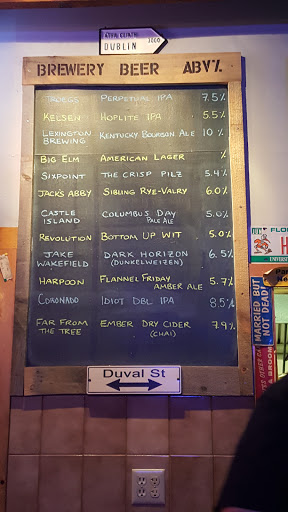 DUBLIN
BREWERY BEER ABV%
TRÖEGS PERPETUAL IPA 7.5%
KELSEN HOPLITE IPA 5.5%
LEXINGTON BREWING KENTUCKY BOURBON ALE 10 %
BIG ELM AMERICAN LAGER %
SIXPOINT THE CRISP PILZ 5.4%
JACK'S ABBY SIBLING RYE-VALRY 6.0%
CASTLE ISLAND COLUMBUS DAY PALE ALE 5.0%
REVOLUTION BOTTOM UP WIT 5.0%
JAKE WAKEFIELD DARK HORIZON (DUNKELWEIZEN) 6.5%
HARPOON FLANNEL FRIDAY AMBER ALE 5.7%
CORONADO IDIOT DBL IPA 8.5%
FAR FROM THE TREE EMBER DRY CIDER (CHAI) 7.9%
Duval St
MARRIED BUT NOT DEAD!